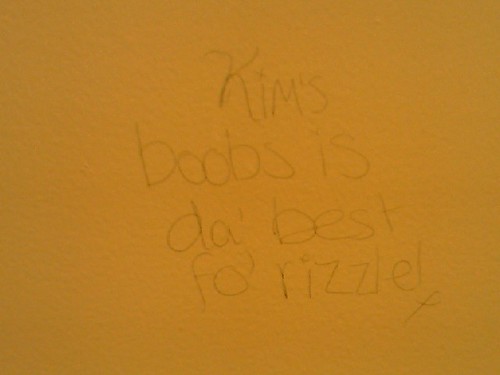 Kim's
boobs is
da' best
fo' rizzle!
x